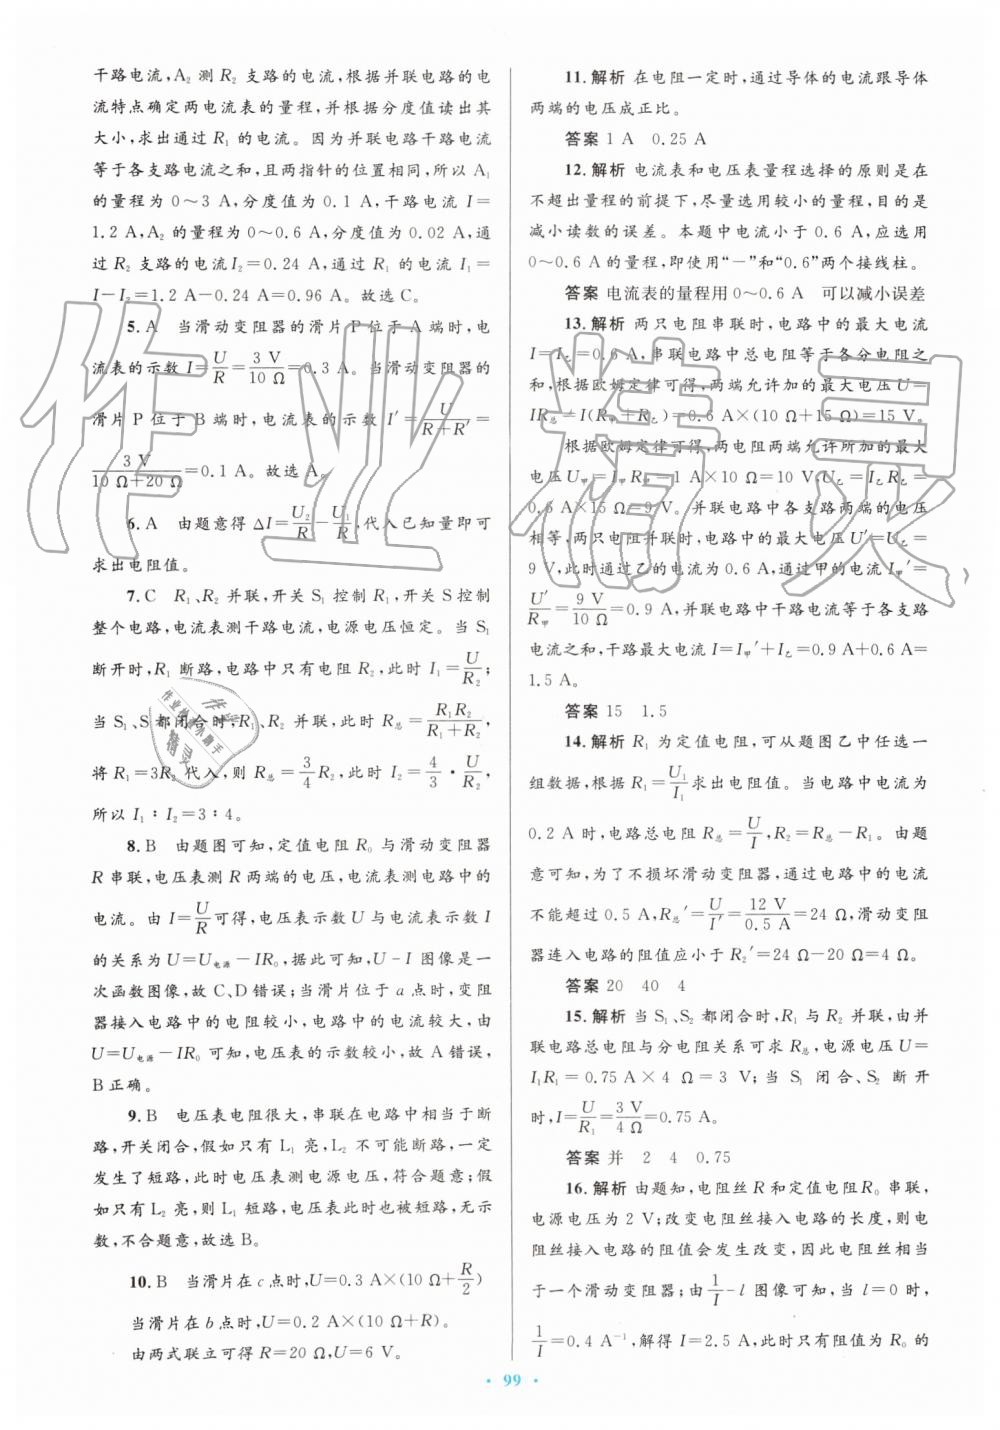 干路电流,A₂ 测 R₂ 支路的电流,根据并联电路的电
流特点确定两电流表的量程,并根据分度值读出其
大小,求出通过 R₁ 的电流。因为并联电路干路电流
等于各支路电流之和,且两指针的位置相同,所以 A₁
的量程为 0～3 A,分度值为 0.1 A,干路电流 I=
1.2 A,A₂ 的量程为 0～0.6 A,分度值为 0.02 A,通
过 R₂ 支路的电流 I₂=0.24 A,通过 R₁ 的电流 I₁=
I-I₂=1.2 A-0.24 A=0.96 A。故选 C。
5. A 当滑动变阻器的滑片 P 位于 A 端时,电
流表的示数 I=U/R=3 V/10 Ω=0.3 A。当滑动变阻器的
滑片 P 位于 B 端时,电流表的示数 I′=U/(R+R′)=
3 V/(10 Ω+20 Ω)=0.1 A。故选 A。
6. A 由题意得 ΔI=U₂/R-U₁/R,代入已知量即可
求出电阻值。
7. C R₁、R₂ 并联,开关 S₁ 控制 R₁,开关 S 控制
整个电路,电流表测干路电流,电源电压恒定。当 S₁
断开时,R₁ 断路,电路中只有电阻 R₂,此时 I₁=U/R₂;
当 S₁、S 都闭合时,R₁、R₂ 并联,此时 R总=R₁R₂/(R₁+R₂),
将 R₁=3R₂ 代入,则 R总=3/4 R₂,此时 I₂=4/3·U/R₂,
所以 I₁∶I₂=3∶4。
8. B 由题图可知,定值电阻 R₀ 与滑动变阻器
R 串联,电压表测 R 两端的电压,电流表测电路中的
电流。由 I=U/R可得,电压表示数 U 与电流表示数 I
的关系为 U=U电源-IR₀,据此可知,U-I 图像是一
次函数图像,故 C、D 错误;当滑片位于 a 点时,变阻
器接入电路中的电阻较小,电路中的电流较大,由
U=U电源-IR₀ 可知,电压表的示数较小,故 A 错误,
B 正确。
9. B 电压表电阻很大,串联在电路中相当于断
路,开关闭合,假如只有 L₁ 亮,L₂ 不可能断路,一定
发生了短路,此时电压表测电源电压,符合题意;假
如只有 L₂ 亮,则 L₁ 短路,电压表此时也被短路,无示
数,不合题意,故选 B。
10. B 当滑片在 c 点时,U=0.3 A×(10 Ω+R/2)
当滑片在 b 点时,U=0.2 A×(10 Ω+R)
由两式联立可得 R=20 Ω,U=6 V。
11. 解析 在电阻一定时,通过导体的电流跟导体
两端的电压成正比。
答案 1 A 0.25 A
12. 解析 电流表和电压表量程选择的原则是在
不超出量程的前提下,尽量选用较小的量程,目的是
减小读数的误差。本题中电流小于 0.6 A,应选用
0～0.6 A 的量程,即使用“-”和“0.6”两个接线柱。
答案 电流表的量程用 0～0.6 A 可以减小误差
13. 解析 两只电阻串联时,电路中的最大电流
I=I乙=0.6 A,串联电路中总电阻等于各分电阻之
和,根据欧姆定律可得,两端允许加的最大电压 U=
IR总=I(R甲+R乙)=0.6 A×(10 Ω+15 Ω)=15 V。
根据欧姆定律可得,两电阻两端允许所加的最大
电压 U甲=I甲R甲=1 A×10 Ω=10 V,U乙=I乙R乙=
0.6 A×15 Ω=9 V。并联电路中各支路两端的电压
相等,两只电阻并联时,电路中的最大电压 U′=U乙=
9 V,此时通过乙的电流为 0.6 A,通过甲的电流 I甲′=
U′/R甲=9 V/10 Ω=0.9 A,并联电路中干路电流等于各支路
电流之和,干路最大电流 I=I甲′+I乙=0.9 A+0.6 A=
1.5 A。
答案 15 1.5
14. 解析 R₁ 为定值电阻,可从题图乙中任选一
组数据,根据 R₁=U₁/I₁求出电阻值。当电路中电流为
0.2 A 时,电路总电阻 R总=U/I,R₂=R总-R₁。由题
意可知,为了不损坏滑动变阻器,通过电路中的电流
不能超过 0.5 A,R总′=U/I′=12 V/0.5 A=24 Ω,滑动变阻
器连入电路的阻值应小于 R₂′=24 Ω-20 Ω=4 Ω。
答案 20 40 4
15. 解析 当 S₁、S₂ 都闭合时,R₁ 与 R₂ 并联,由并
联电路总电阻与分电阻关系可求 R总,电源电压 U=
I₁R₁=0.75 A×4 Ω=3 V;当 S₁ 闭合、S₂ 断开
时,I=U/R₁=3 V/4 Ω=0.75 A。
答案 并 2 4 0.75
16. 解析 由题知,电阻丝 R 和定值电阻 R₀ 串联,
电源电压为 2 V;改变电阻丝接入电路的长度,则电
阻丝接入电路的阻值会发生改变,因此电阻丝相当
于一个滑动变阻器;由 1/I-l 图像可知,当 l=0 时,
1/I=0.4 A⁻¹,解得 I=2.5 A,此时只有阻值为 R₀ 的
· 99 ·
作业精灵